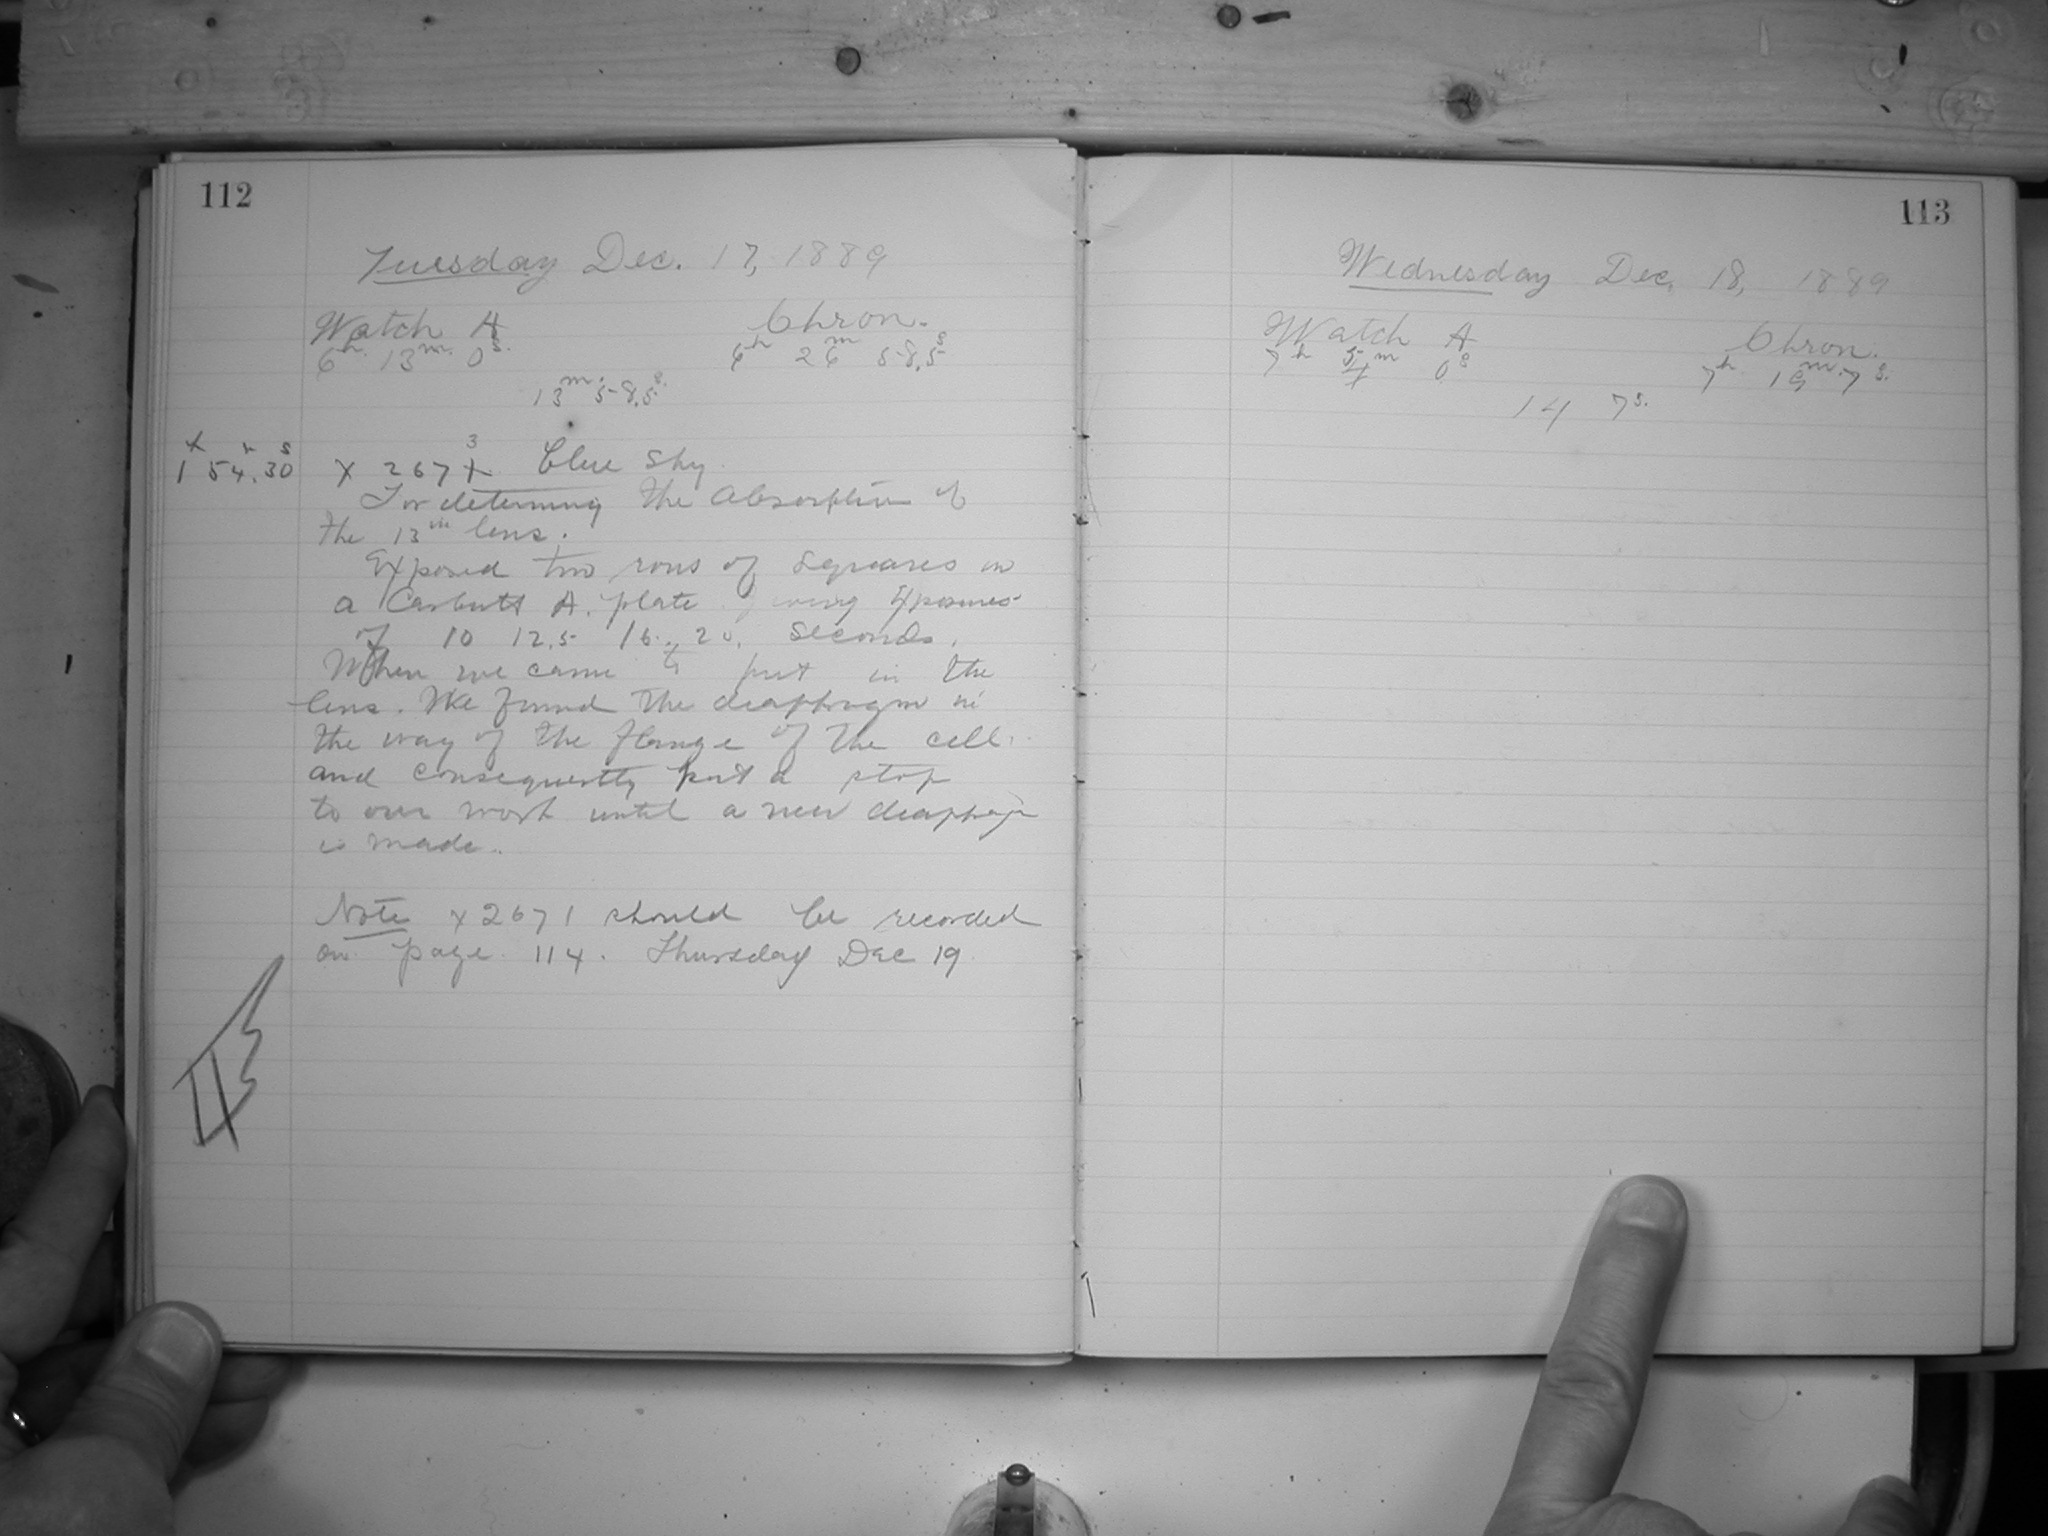 112
Tuesday Dec. 17, 1889
Watch A Chron.
6h 13m 0s. 6h 26m 58.5s
13m 58.5s.
1 54.30 X 2673 Blue Sky.
For determining the Absorption of
the 13in lens.
Exposed two rows of squares on
a Carbutt A. plate giving Exposures
of 10 12.5 16. 20. Seconds.
When we came to put in the
lens. We found the deaphragm in
the way of the flange of the cell.
and consequently put a stop
to our work until a new deaphragm
is made.
Note X2671 should be recorded
on page 114. Thursday Dec 19
113
Wednesday Dec. 18, 1889
Watch A Chron.
7h 5m 0s 7h 19m 7s.
14 7s.